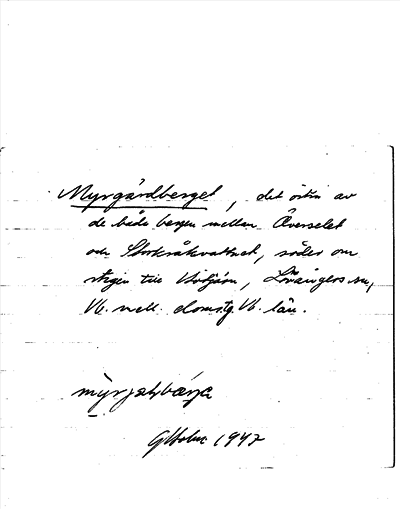 Myrgårdberget, det östra av
de båda bergen mellan Överselet
och Storkråkvattnet, söder om
stigen till tjärn, Lövångers sn,
Vb. v domstg. Vb. län.
GHolm 1947